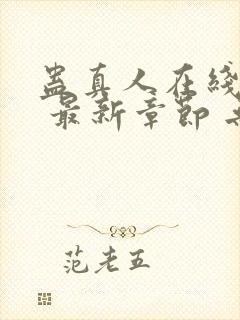 蛊真人在线
最新章节
范老五